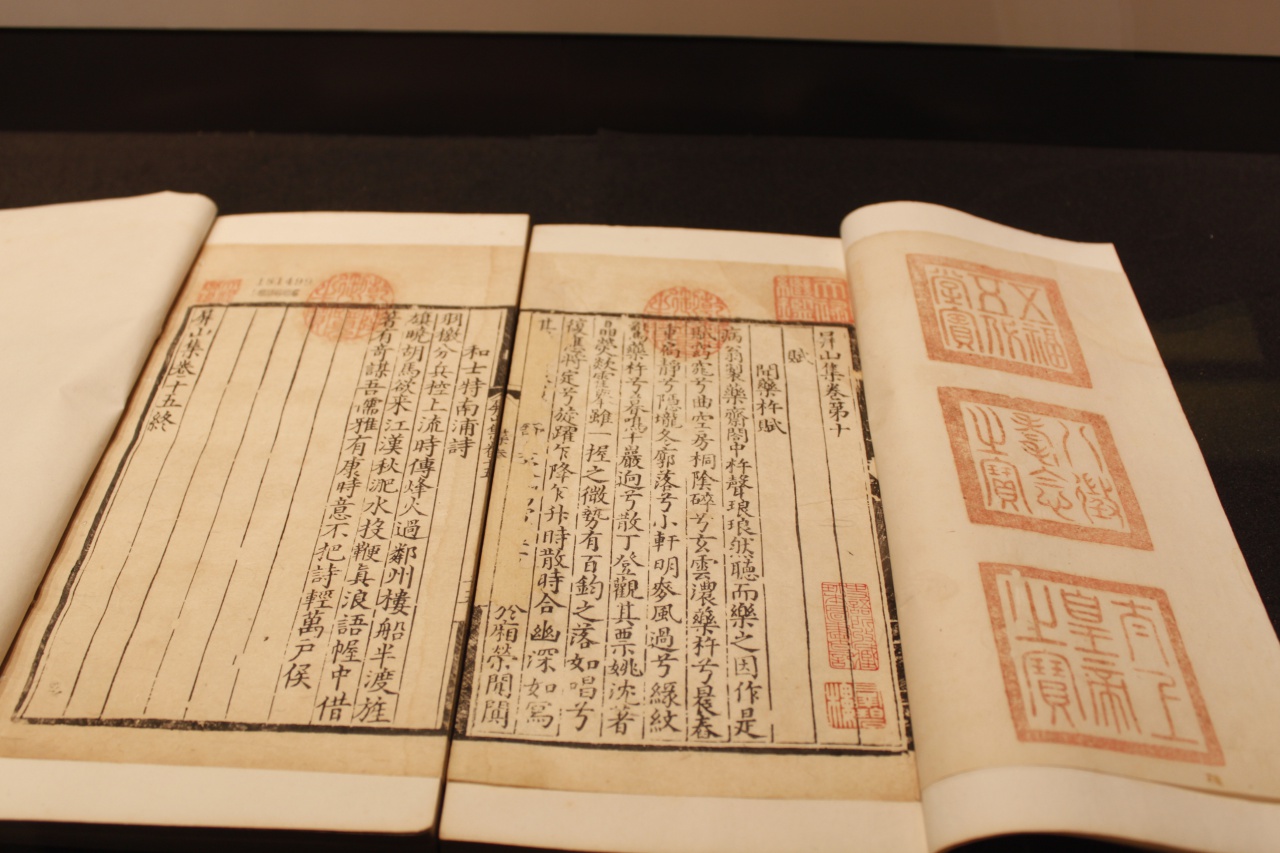 五福五代堂寶
八徵耄念之寶
太上皇帝之寶
屏山集卷第十
賦
聞藥杵賦
病翁製藥齋閣中杵聲琅琅然聽而樂之因作是
兮曲空房桐陰碎兮玄雲濃藥杵兮晨舂
靜兮隠壠冬廓落兮小軒明麥風過兮緑紋
藥杵兮暮鳴千巖逈兮散丁登觀其票姚沈著
雖一握之微勢有百鈞之落如唱兮
旋躍乍降乍升時散時合幽深如寫
其
和士特南浦詩
羽檄分兵控上流時傳烽火過鄰州樓船半渡旌
旗曉胡馬欲来江漢秋淝水投鞭真浪語幄中借
著有竒謀吾儒雅有康時意不把詩輕萬戸侯
屏山集卷十五終